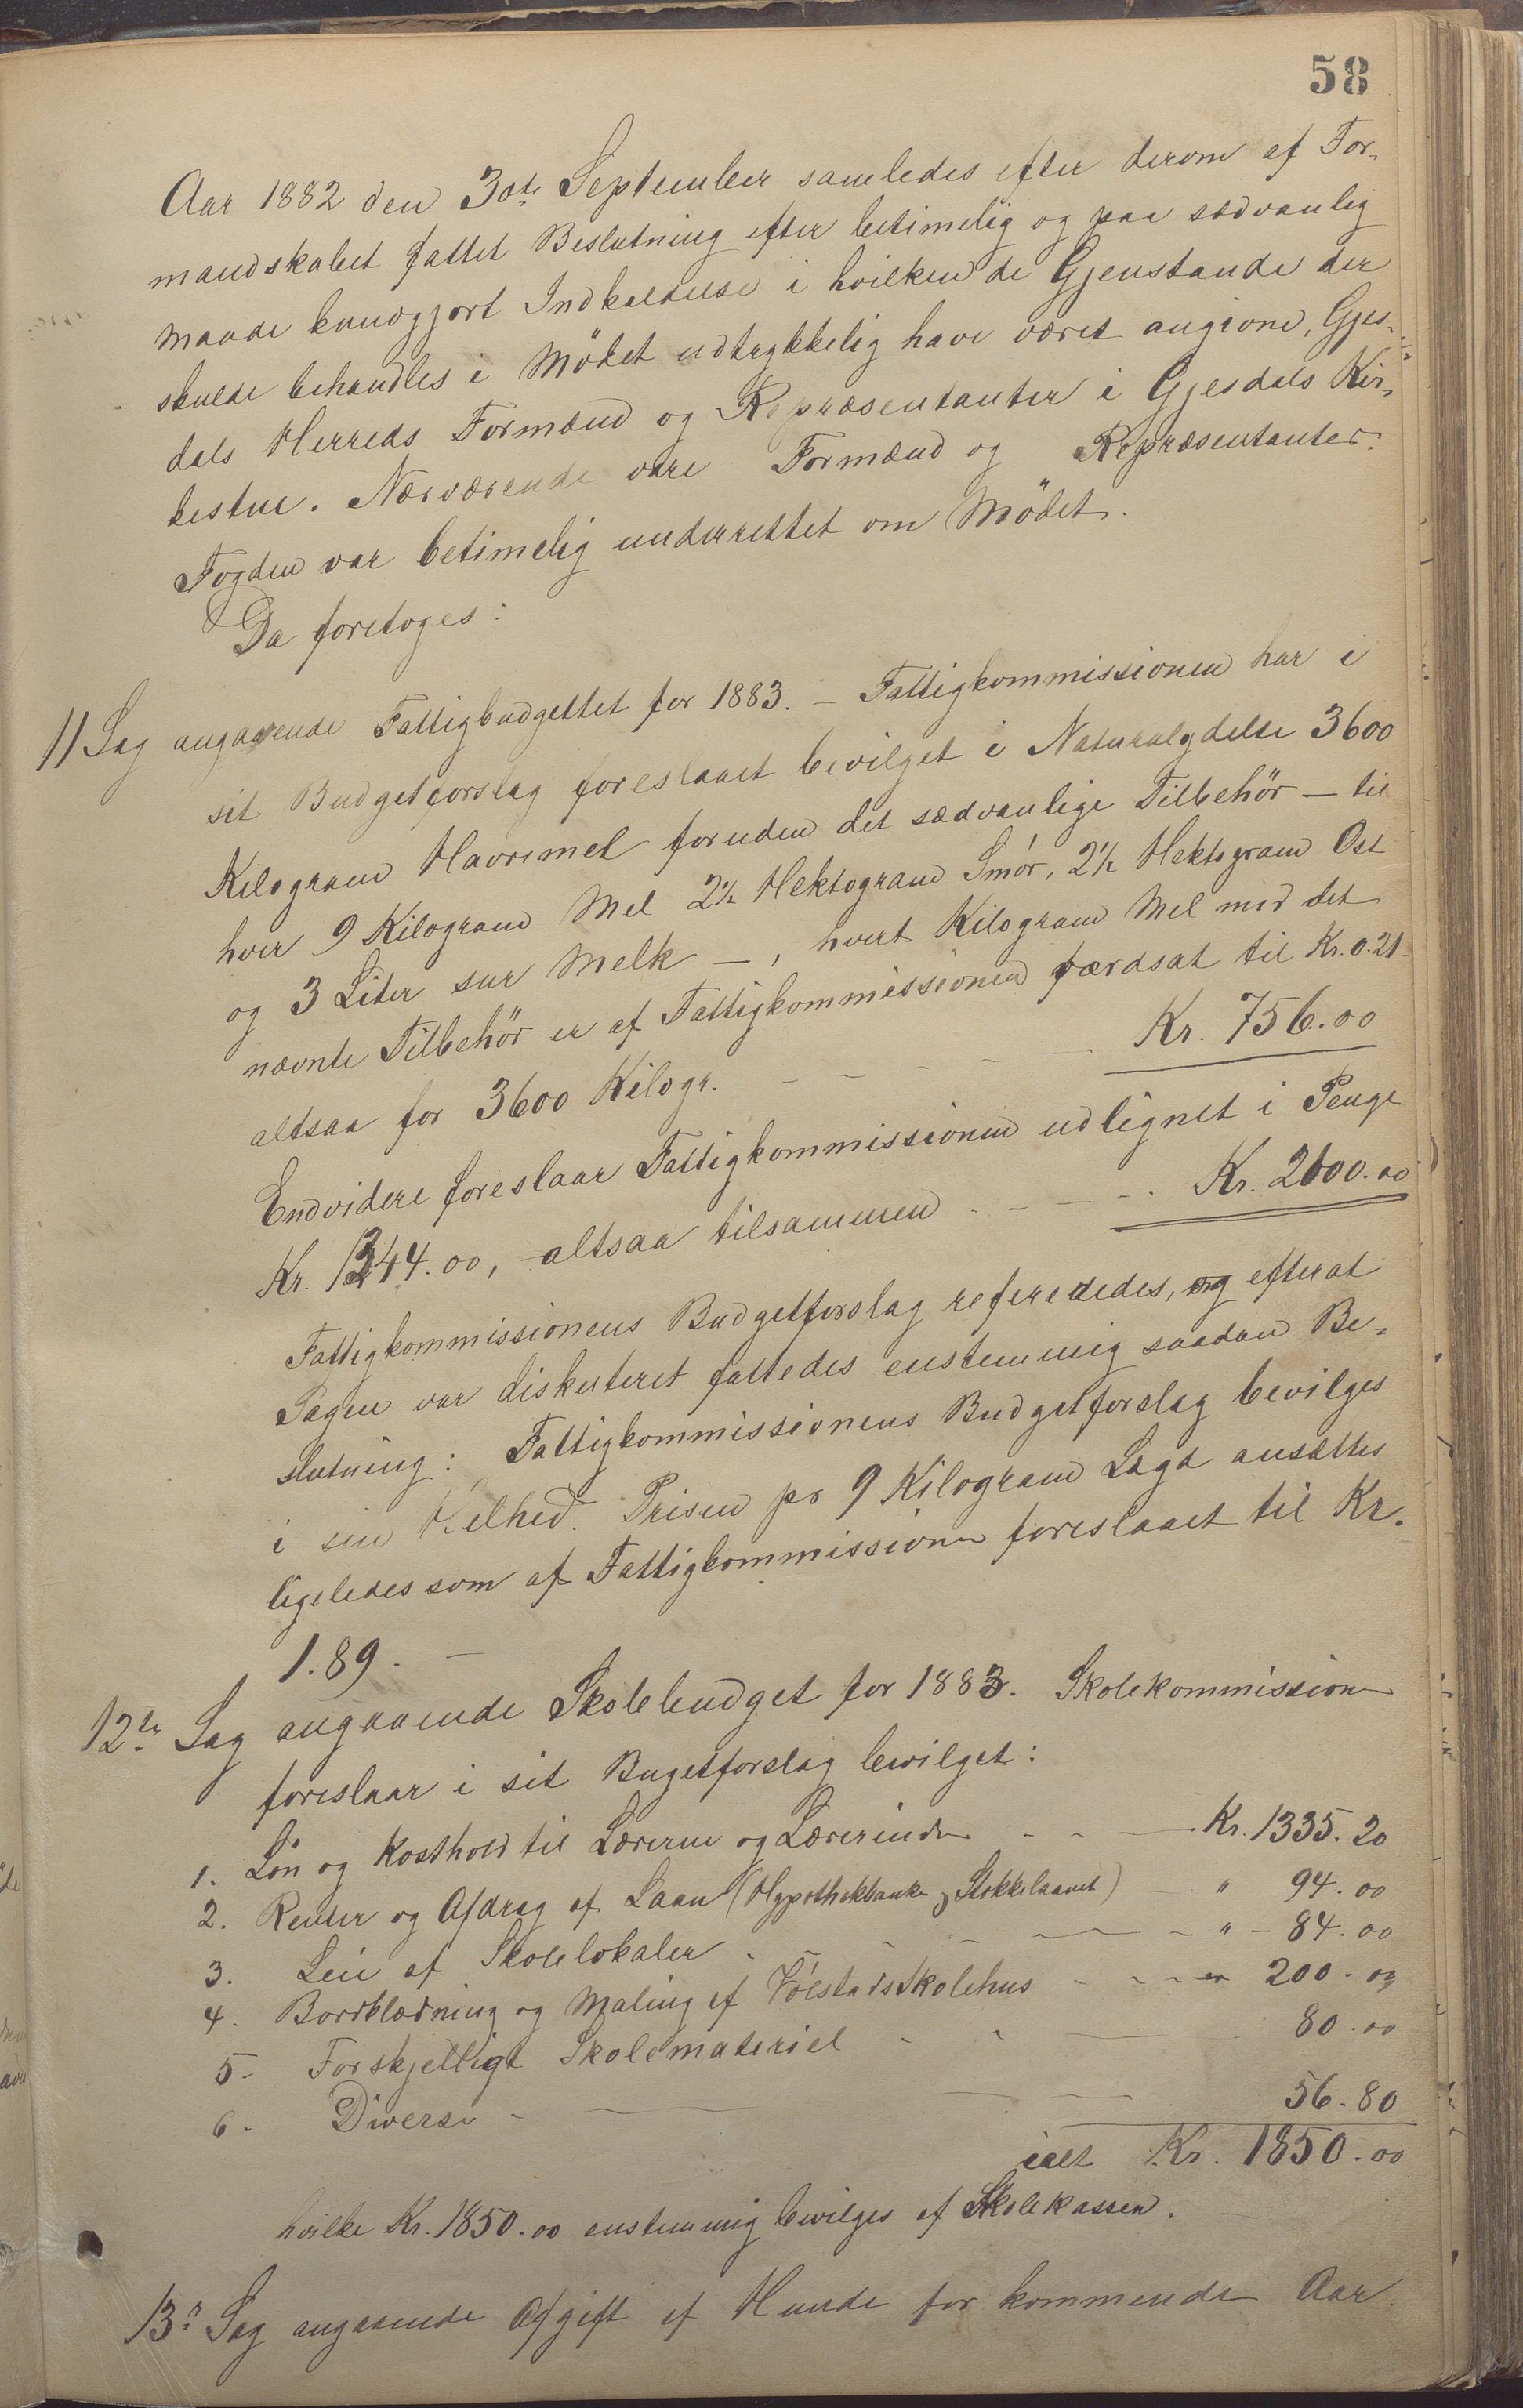 58
Aar 1882 den 30te September samledes efter derom af For-
mandskabet fattet Beslutning efter betimelig og paa sædvanlig
Maade kundgjort Indkaldelse i hvilken de Gjenstande der
skulde behandles i Mödet udtrykkelig have været angivne, Gjes-
dals Herreds Formænd og Repræsentanter i Gjesdals Kir-
kestue. Nærværende vare Formænd og Repræsentanter.
Fogden var betimelig underrettet om Mödet.
Da foretoges:
11 Sag angaaende Fattigbudgettet for 1883. – Fattigkommissionen har i
sit Budgetforslag foreslaaet bevilget i Naturalydelse 3600
Kilogram Havremel foruden det sædvanlige Tilbehör – til
hver 9 Kilogram Mel 2½ Hektogram Smör, 2½ Hektogram Ost
og 3 Liter sur Melk –, hvert Kilogram Mel med det
nævnte Tilbehör er af Fattigkommissionen værdsat til Kr. 0.21 –
altsaa for 3600 Kilogr. – – – – Kr. 756.00
Endvidere foreslaar Fattigkommissionen udlignet i Penge
Kr. 1344.00, altsaa tilsammen – – – – Kr. 2100.00
Fattigkommissionens Budgetforslag refereredes, og efterat
Sagen var diskuteret fattedes enstemmig saadan Be-
slutning: Fattigkommissionens Budgetforslag bevilges
i sin Helhed. Prisen pr 9 Kilogram Lægd ansættes
ligeledes som af Fattigkommissionen foreslaaet til Kr.
1.89. –
12te Sag angaaende Skolebudget for 1883. Skolekommissionen
foreslaar i sit Bugetforslag bevilget:
1. Lön og Kosthold til Lærerne og Lærerinden – – – Kr. 1335.20
2. Renter og Afdrag af Laan (Hypothekbanken & Stokkelaanet) – " 94.00
3. Leie af Skolelokaler – – – " – 84.00
4. Bordklædning og Maling af Völstads Skolehus – – – " 200.00
5 – Forskjelligt Skolemateriel – – 80.00
6 – Diverse – – – 56.80
ialt Kr. 1850.00
hvilke Kr. 1850.00 enstemmig bevilges af Skolekassen.
13de Sag angaaende Afgift af Hunde for kommende Aar.